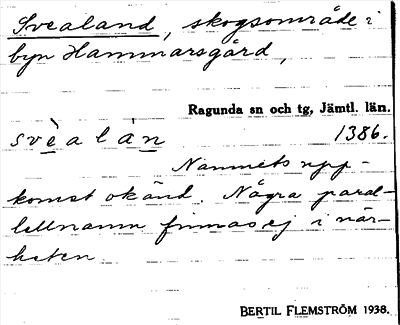 Svealand, skogsområde i
byn Hammarsgård,
Ragunda sn och tg, Jämtl. län.
svèalàn 1386.
Namnets upp-
komst okänd. Några paral-
lellnamn finnas ej i när-
heten.
BERTIL FLEMSTRÖM 1938.